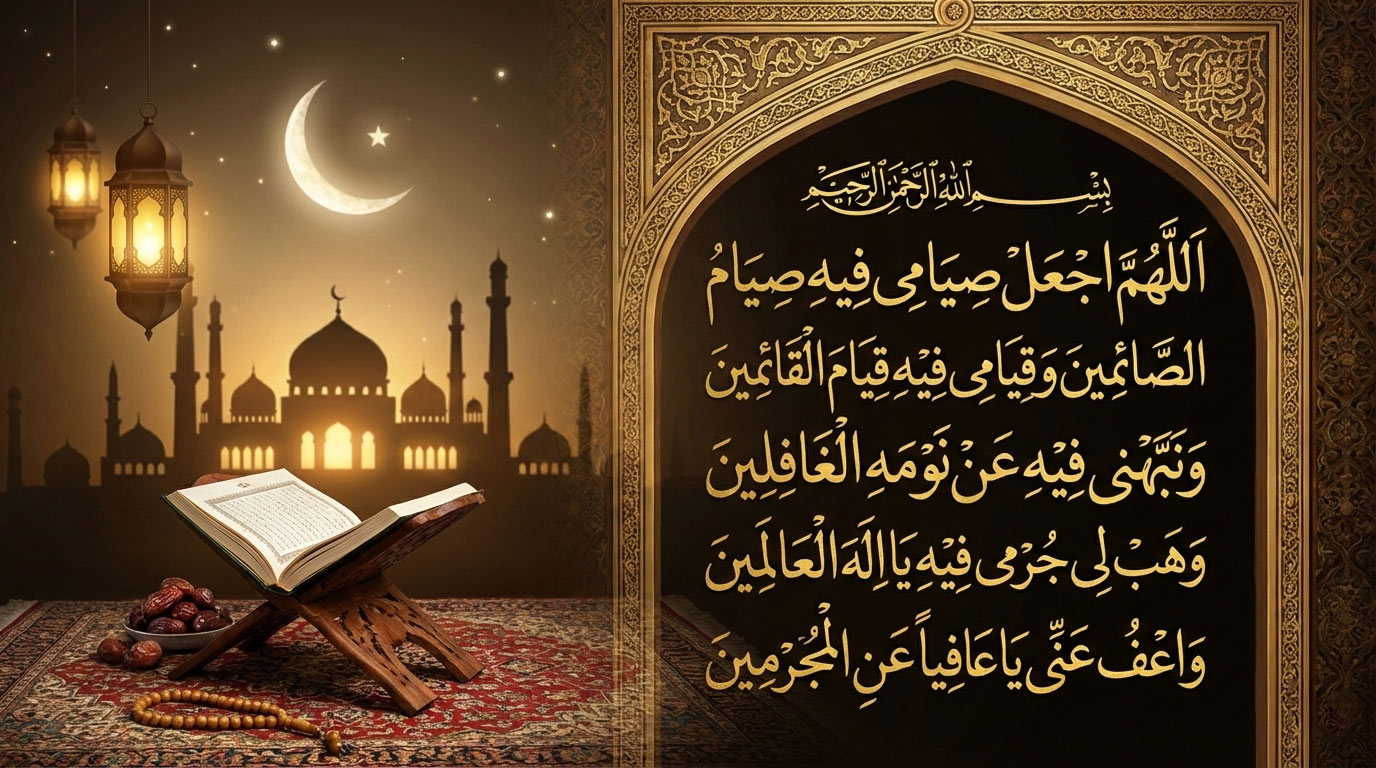 بِسْمِ اللهِ الرَّحْمَنِ الرَّحِيمِ
اَللَّهُمَّ اجْعَلْ صِيَامِى فِيهِ صِيَامُ
الصَّائِمِينَ وَقِيَامِى فِيْهِ قِيَامَ الْقَائِمِينَ
وَنَبَّهْنى فِيْهِ عَنْ نَوْمَهِ الْغَافِلِينَ
وَهَبْ لِى جُرْمى فِيْهِ يَا اِلَهَ الْعَالَمِينَ
وَاعْفُ عَنِّى يَا عَافِياً عَنِ الْمُجْرْمِينَ